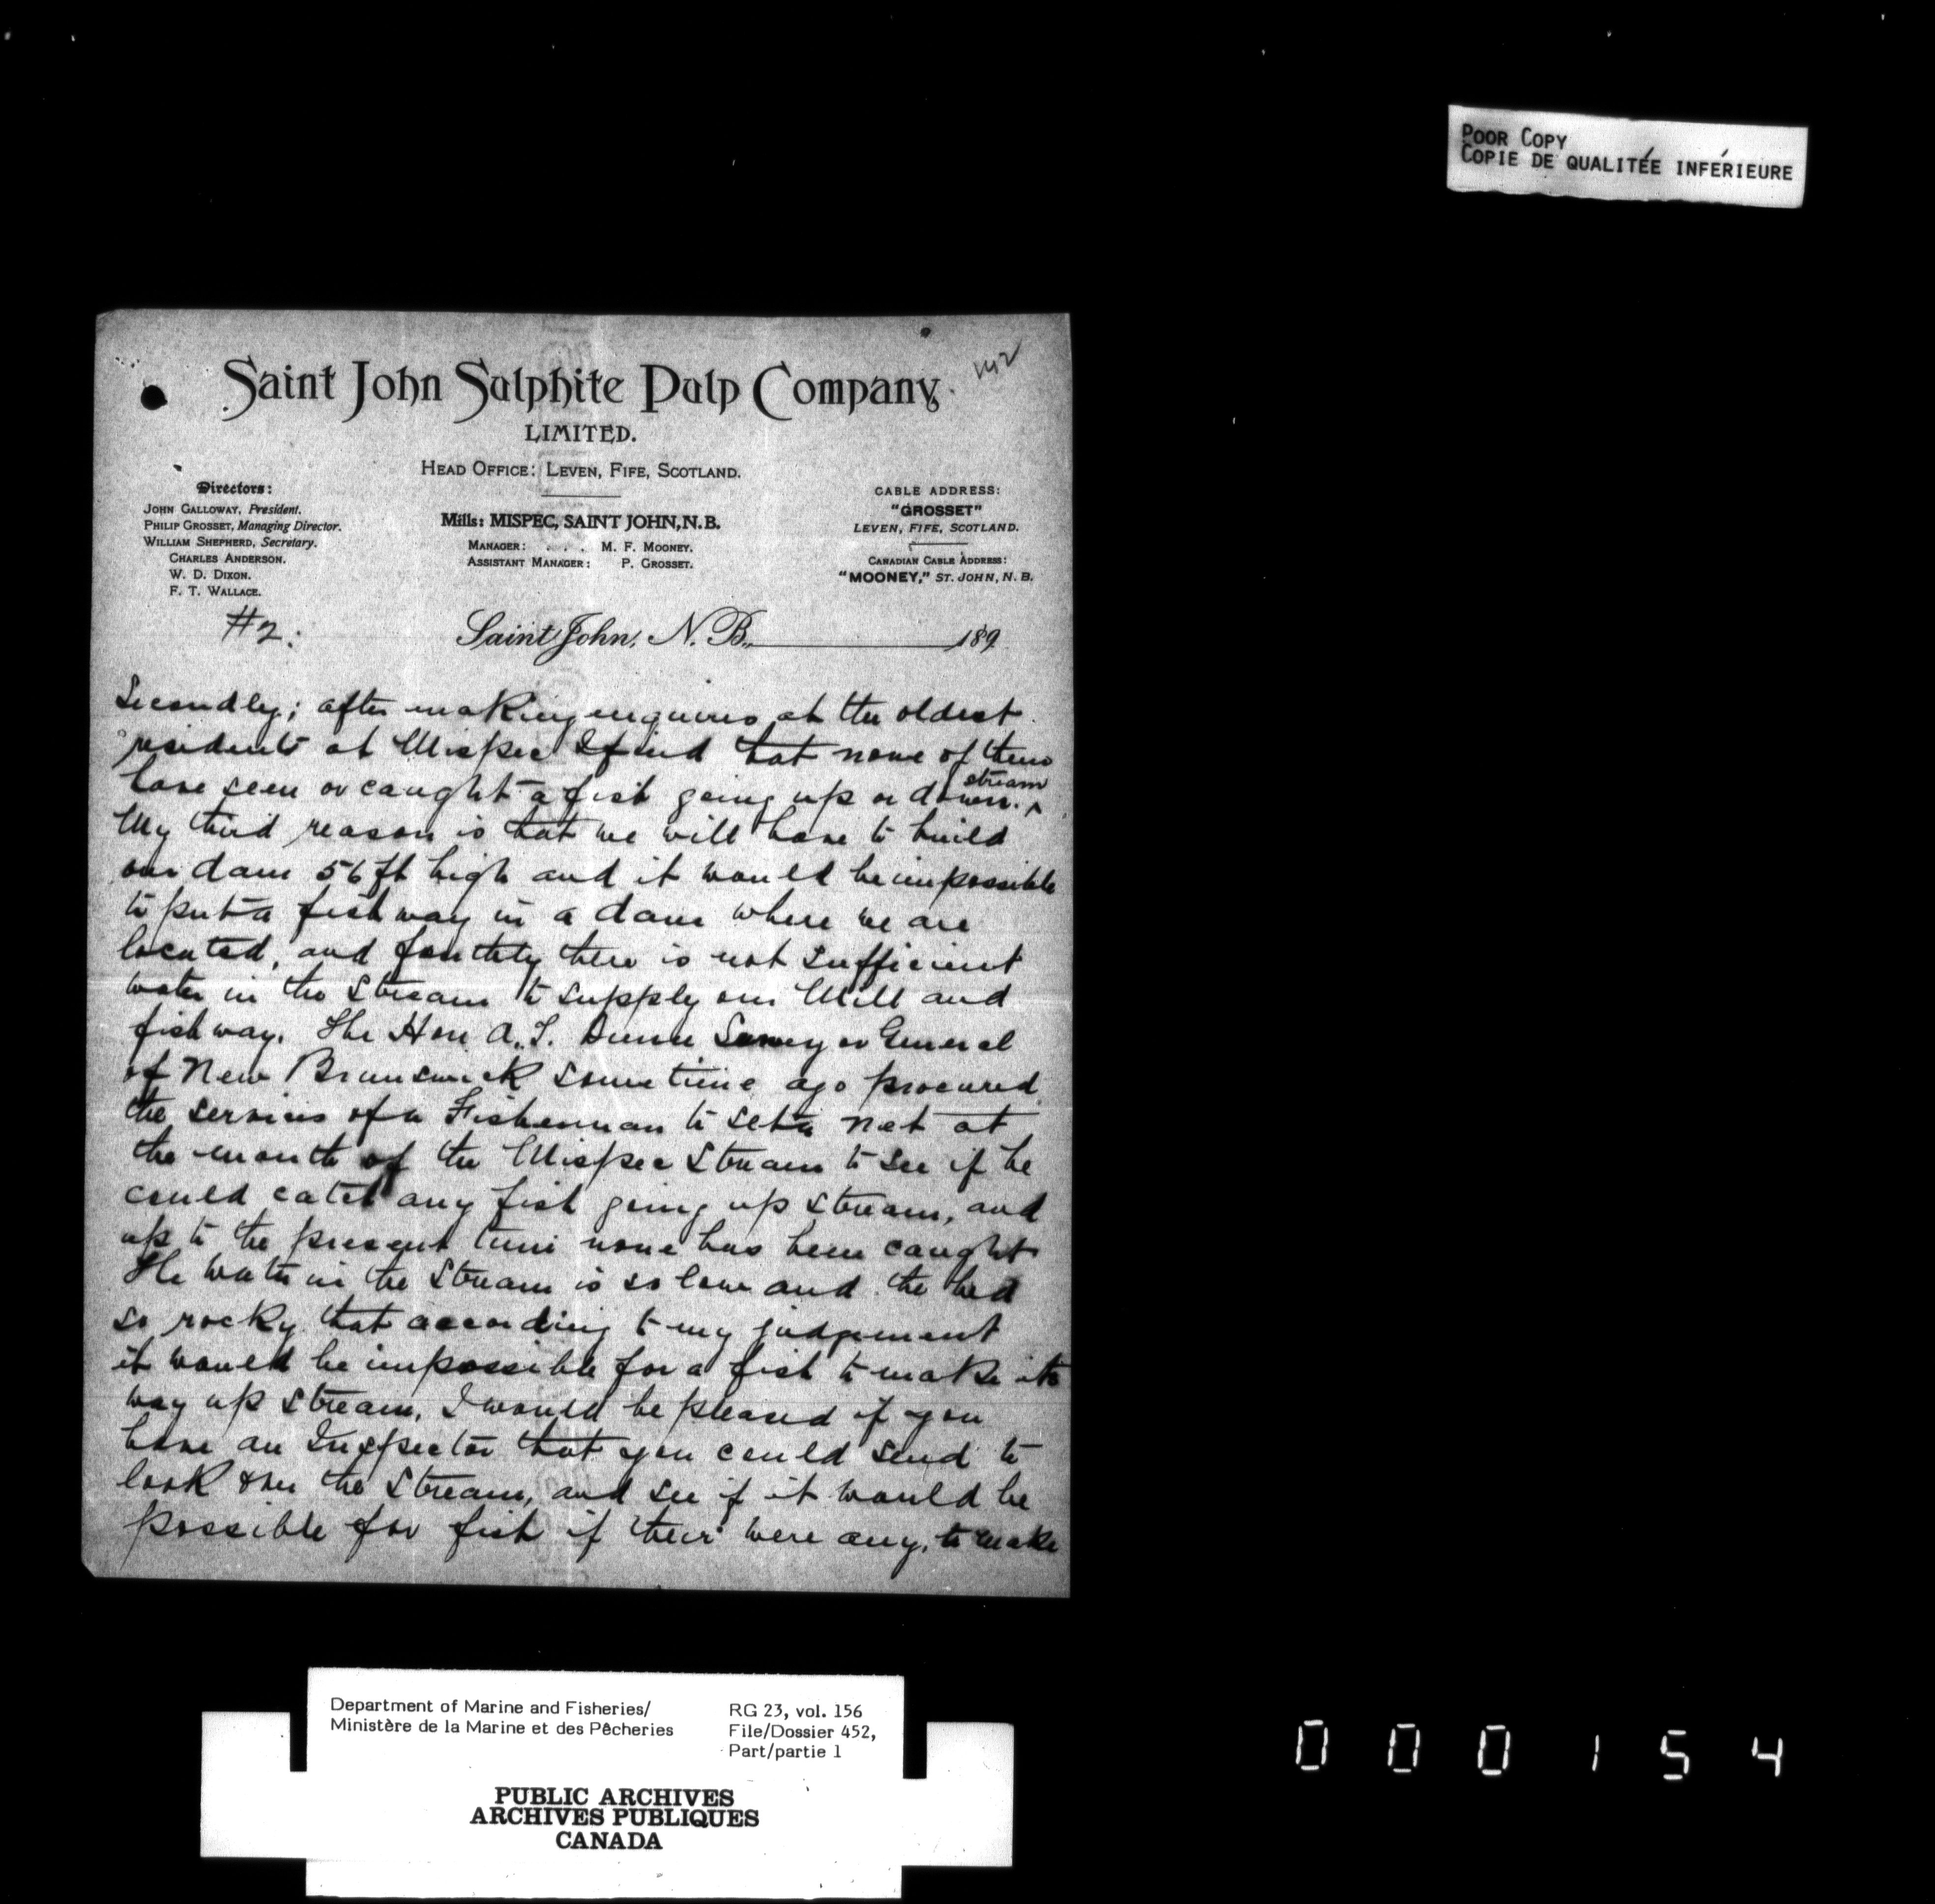 POOR COPY
COPIE DE QUALITÉE INFÉRIEURE
142
Saint John Sulphite Pulp Company,
LIMITED.
HEAD OFFICE: LEVEN, FIFE, SCOTLAND.
Directors:
JOHN GALLOWAY, President.
PHILIP GROSSET, Managing Director.
WILLIAM SHEPHERD, Secretary.
CHARLES ANDERSON.
W. D. DIXON.
F. T. WALLACE.
Mills: MISPEC, SAINT JOHN, N.B.
MANAGER: . . . M. F. MOONEY.
ASSISTANT MANAGER: P. GROSSET.
CABLE ADDRESS:
"GROSSET"
LEVEN, FIFE, SCOTLAND.
CANADIAN CABLE ADDRESS:
"MOONEY," ST. JOHN, N. B.
#2.
Saint John, N. B., 189
Secondly; after making enquires at the oldest
residents at Mispec I find that none of them
have seen or caught a fish going up or down stream.
My third reason is that we will have to build
our dam 56 ft high and it would be impossible
to put a fishway in a dam where we are
located, and fourthly there is not sufficient
water in the stream to supply our Mill and
fishway. The Hon A. T. Dunn Surveyor General
of New Brunswick sometime ago procured
the services of a Fisherman to set a net at
the mouth of the Mispec Stream to see if he
could catch any fish going up stream, and
up to the present time none has been caught
The water in the stream is so low and the bed
so rocky that according to my judgement
it would be impossible for a fish to make its
way up stream, I would be pleased if you
have an Inspector that you could send to
look over the stream, and see if it would be
possible for fish if their were any, to make
Department of Marine and Fisheries/
Ministère de la Marine et des Pêcheries
RG 23, vol. 156
File/Dossier 452,
Part/partie 1
PUBLIC ARCHIVES
ARCHIVES PUBLIQUES
CANADA
000154